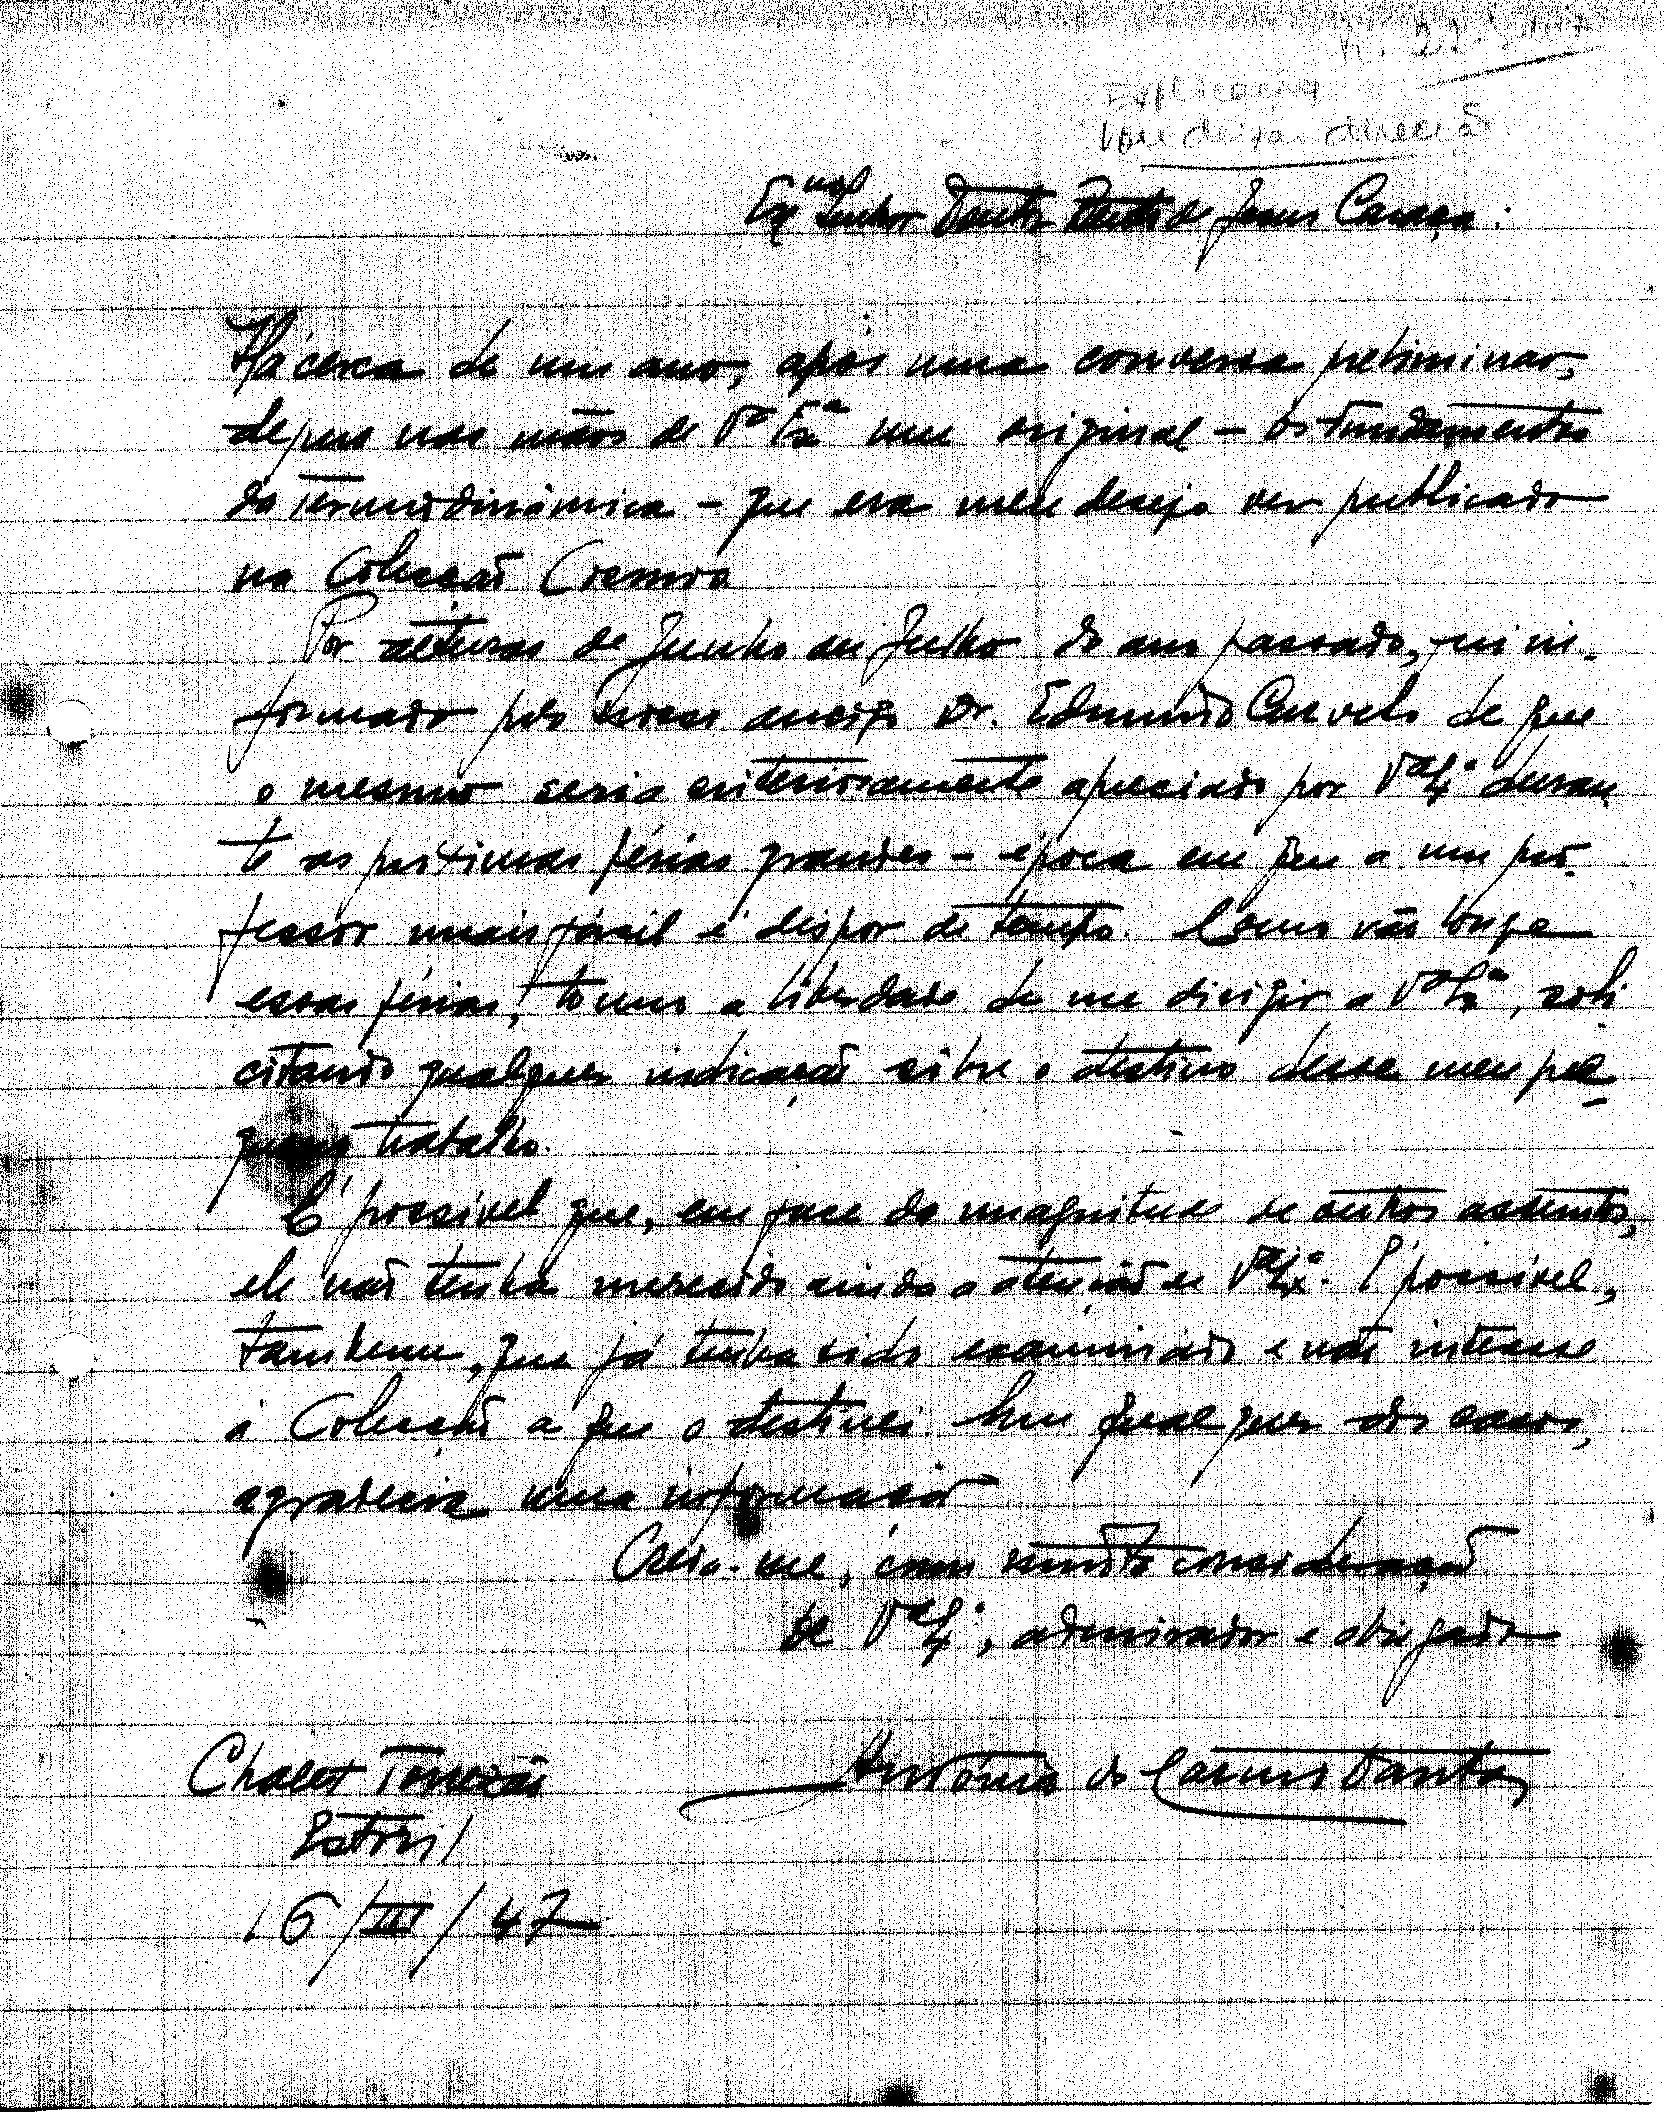 R. 22
Explicação
Vou deixar direcção
Exmo Senhor Doutor Bento de Jesus Caraça:
Há cerca de um ano, após uma conversa preliminar,
depus nas mãos de Va Exa um original – Os Fundamentos
da Termodinâmica – que era meu desejo ver publicado
na Colecção Cosmos
Por alturas de Junho ou Julho do ano passado, fui in-
formado pelo nosso amigo Dr. Edmundo Curvelo de que
o mesmo seria criteriosamente apreciado por Va Exa duran
te as próximas férias grandes – época em que a um pro-
fessor mais fácil é dispor de tempo. Como vão longe
essas férias, tomo a liberdade de me dirigir a Va Exa, soli
citando qualquer indicação sôbre o destino desse meu pe-
queno trabalho.
É possível que, em face da magnitude de outros assuntos,
ele não tenha merecido ainda a atenção de Va Exa. É possível,
tambem, que já tenha sido examinado e não interesse
á Colecção a que o destinei. Em qualquer dos casos,
agradecia uma informação
Creia-me, com muita consideração
de Va Exa, admirador e obrigado
Chalet Terezão António do Carmo Dantas
Estoril
16/III/47